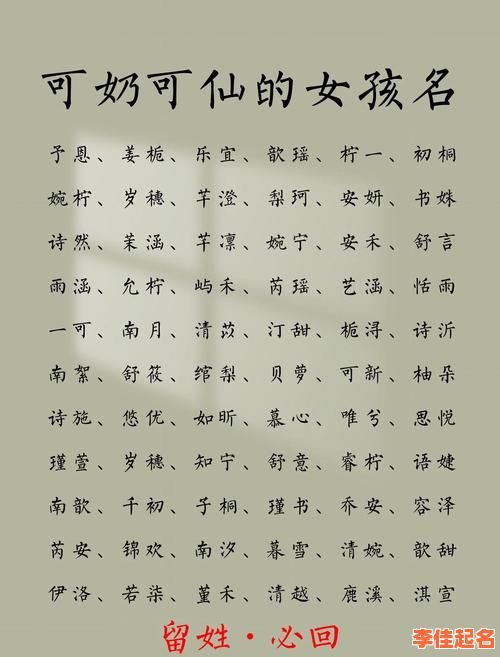 可奶可仙的女孩名
予恩、姜栀、乐宜、歆瑶、柠一、初桐
婉柠、岁穗、芊澄、梨珂、安妍、书姝
诗然、茉涵、芊凛、婉宁、安禾、舒言
雨涵、允柠、屿禾、芮瑶、艺涵、恬雨
一可、南月、清苡、汀甜、栀浔、诗沂
南絮、舒筱、绾梨、贝萝、可新、柚朵
诗施、悠优、如昕、慕心、唯兮、思悦
瑾萱、岁穗、知宁、舒意、睿柠、语婕
南歆、千初、子桐、瑾书、乔安、容泽
芮安、锦欢、南汐、暮雪、清婉、歆甜
伊洛、若柒、堇禾、清越、鹿溪、淇宣
留姓·必回
李佳起名